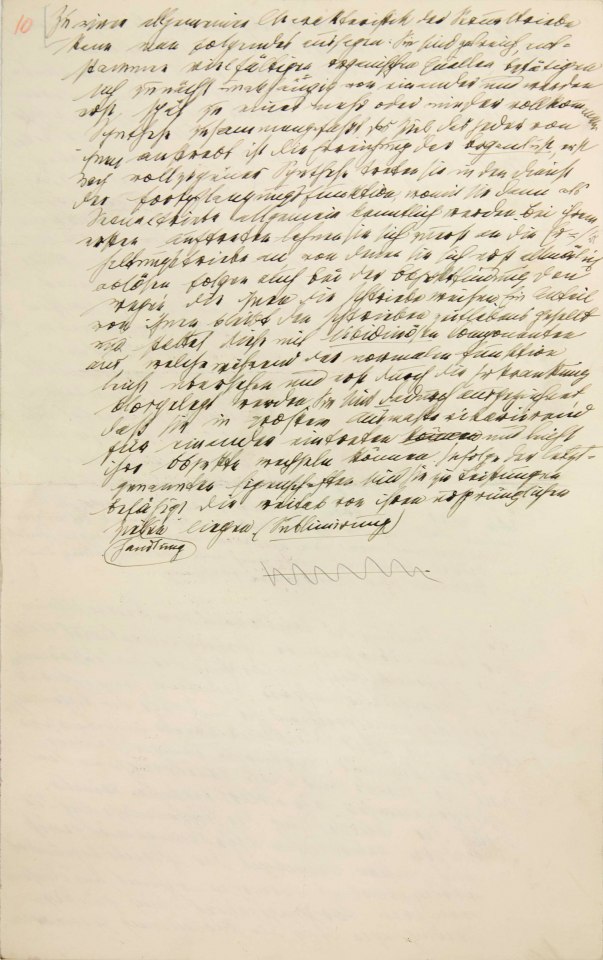 10 Zu einer allgemeinen Charakteristik der Sexualtriebe
kann man folgendes aussagen: Sie sind zahlreich, ent-
stammen vielfältigen organischen Quellen, betätigen
sich zunächst unabhängig von einander und werden
erst spät zu einer mehr oder minder vollkommenen
Synthese zusammengefaßt. Das Ziel, das jeder von
ihnen anstrebt ist die Erreichung der Organlust, erst
nach vollzogener Synthese treten sie in den Dienst
der Fortpflanzungsfunktion, womit sie dann als
Sexualtriebe allgemein kenntlich werden. Bei ihrem
ersten Auftreten lehnen sie sich zuerst an die Er-
haltungstriebe an, von denen sie sich erst allmälich
ablösen, folgen auch bei der Objektfindung den
Wegen, die ihnen die Ichtriebe weisen. Ein Anteil
von ihnen bleibt den Ichtrieben zeitlebens gesellt
und stattet diese mit libidinösen Componenten
aus, welche während der normalen Funktion
leicht übersehen und erst durch die Erkrankung
klargelegt werden. Sie sind dadurch ausgezeichnet
daß sie in großem Ausmaße vikariierend
für einander eintreten können und leicht
ihre Objekte wechseln können. Infolge der letzt-
genannten Eigenschaften sind sie zu Leistungen
befähigt, die weitab von ihren ursprünglichen
Ziel liegen (Sublimirung)
handlung